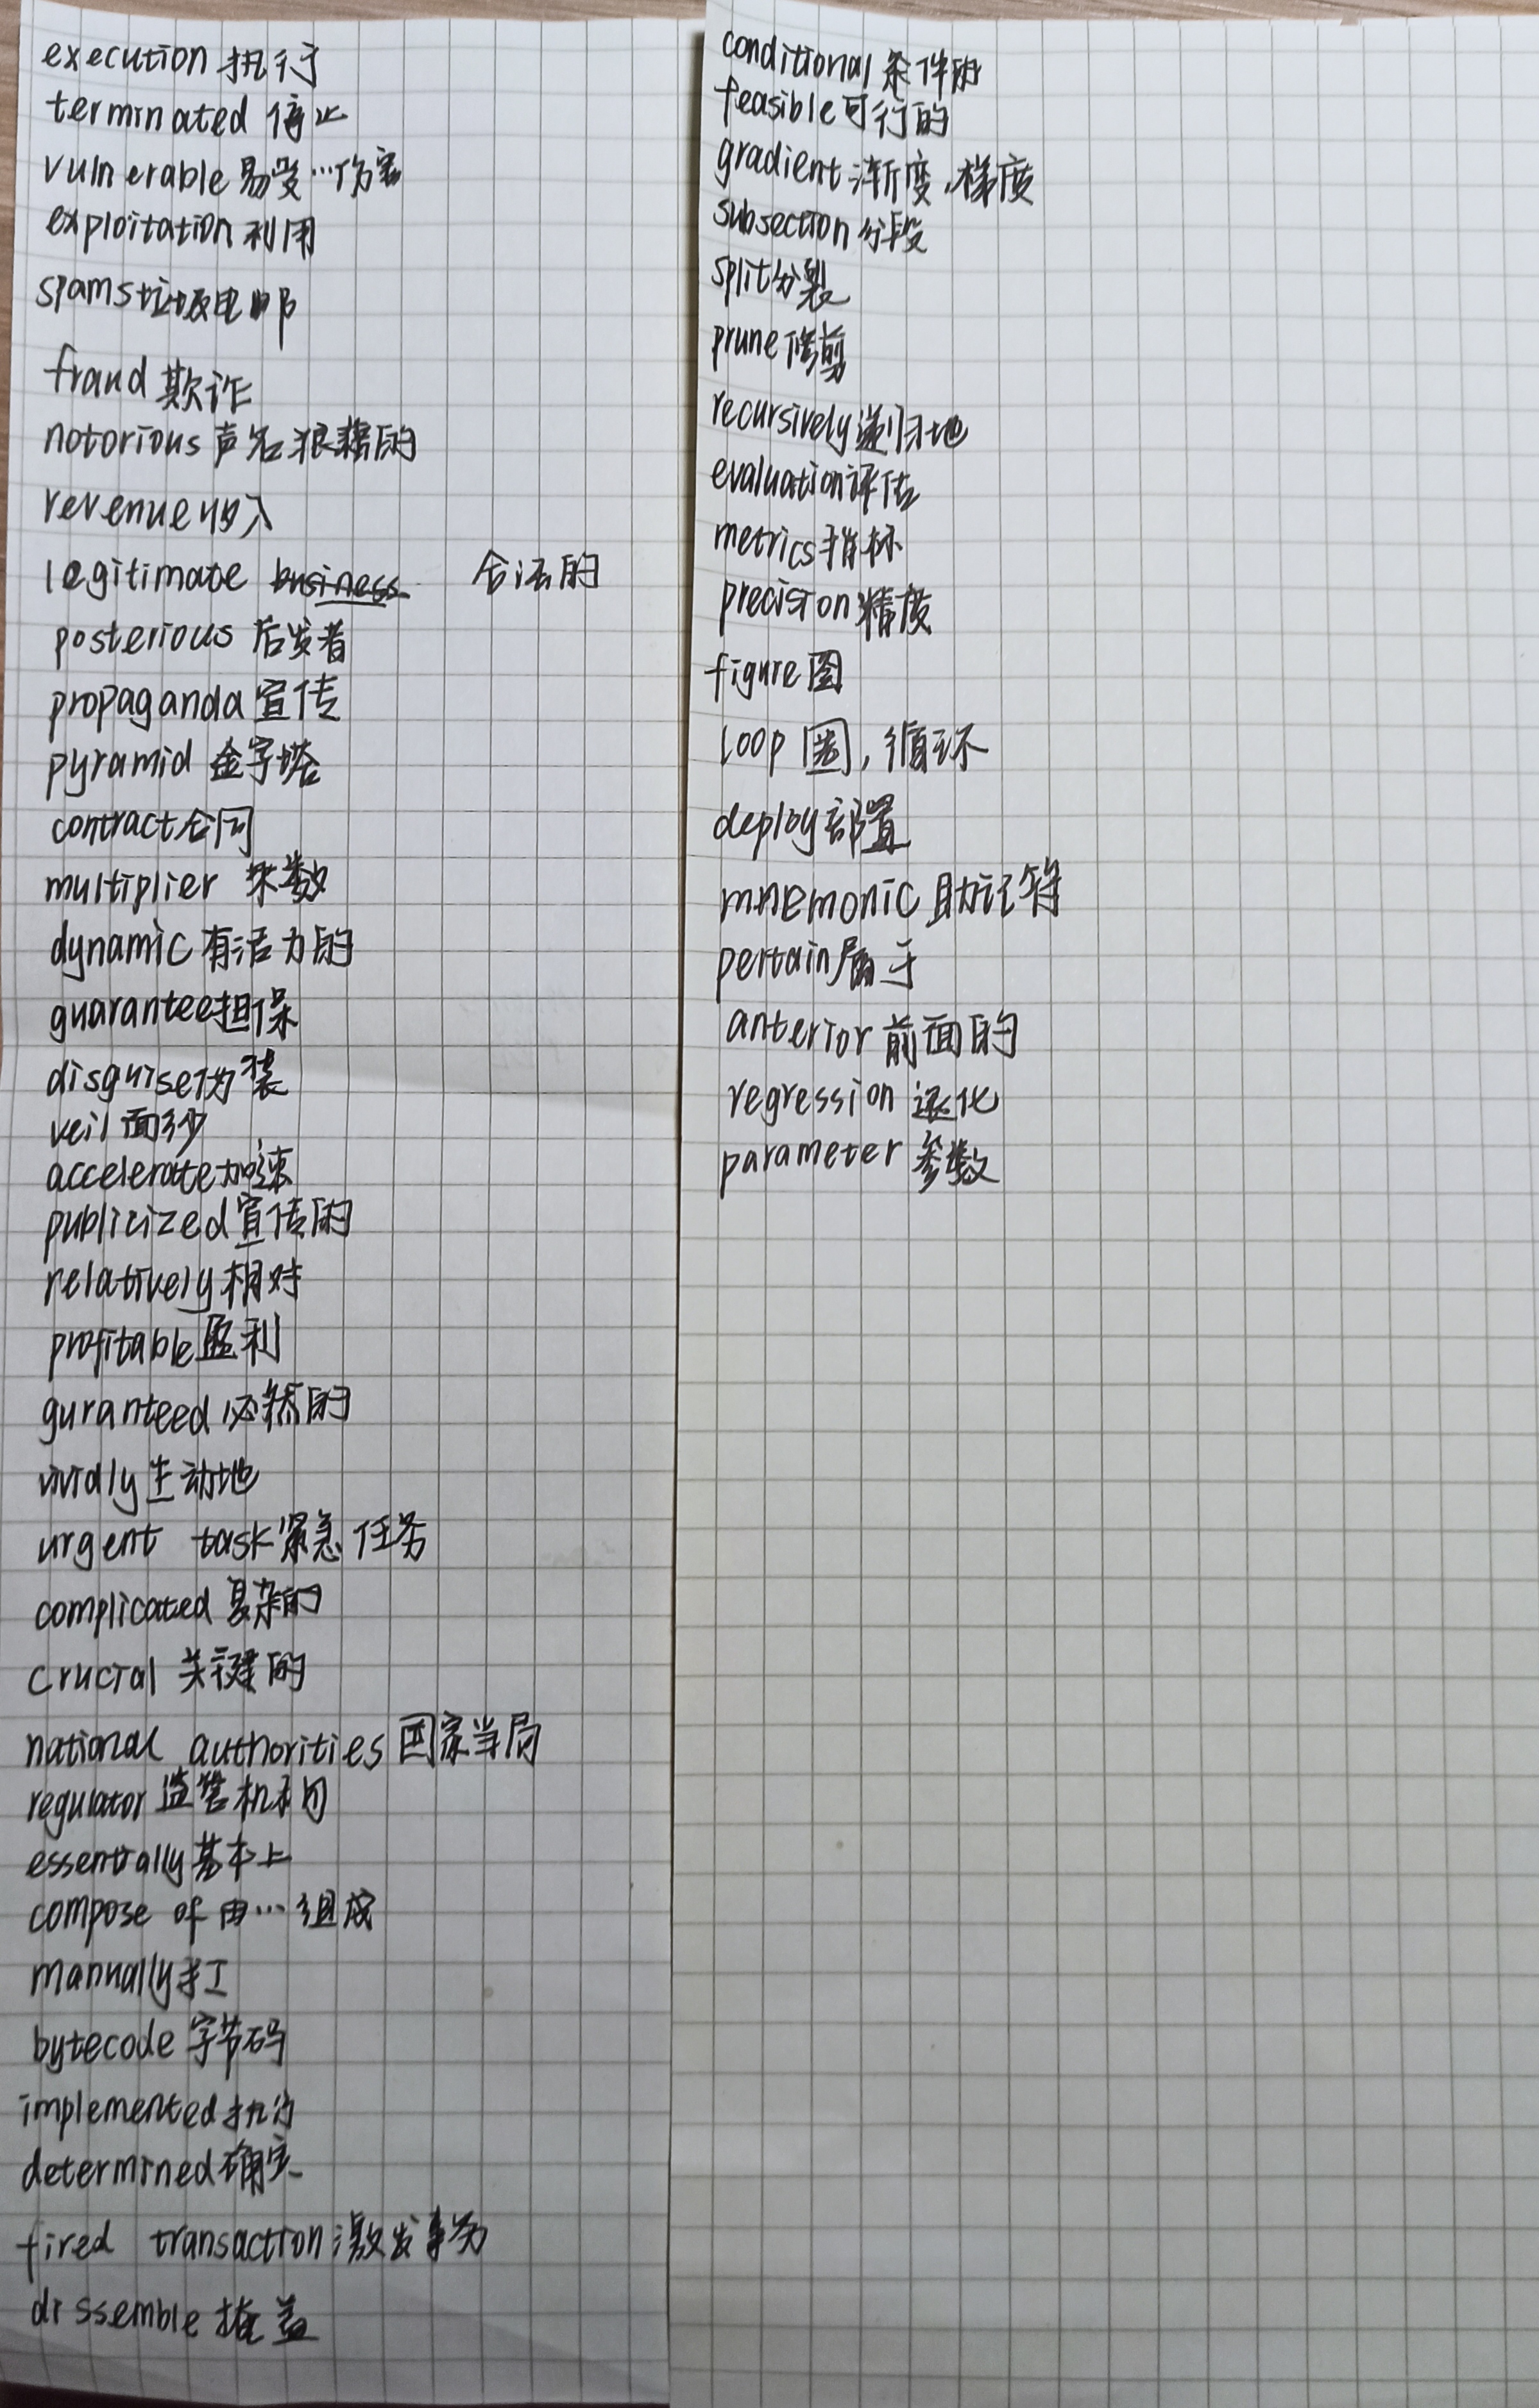 execution 执行
terminated 停止
vulnerable 易受…伤害
exploitation 利用
spams 垃圾电邮
fraud 欺诈
notorious 声名狼藉的
revenue 收入
legitimate business 合法的
posterious 后发者
propaganda 宣传
pyramid 金字塔
contract 合同
multiplier 乘数
dynamic 有活力的
guarantee 担保
disguise 伪装
veil 面纱
accelerate 加速
publicized 宣传的
relatively 相对
profitable 盈利
guranteed 必然的
vividly 生动地
urgent task 紧急任务
complicated 复杂的
crucial 关键的
national authorities 国家当局
regulator 监管机构
essentially 基本上
compose of 由…组成
manually 手工
bytecode 字节码
implemented 执行
determined 确定
fired transaction 激发事务
dissemble 掩盖
conditional 条件的
feasible 可行的
gradient 渐变,梯度
subsection 分段
split 分裂
prune 修剪
recursively 递归地
evaluation 评估
metrics 指标
precision 精度
figure 图
loop 圈,循环
deploy 部署
mnemonic 助记符
pertain 属于
anterior 前面的
regression 退化
parameter 参数